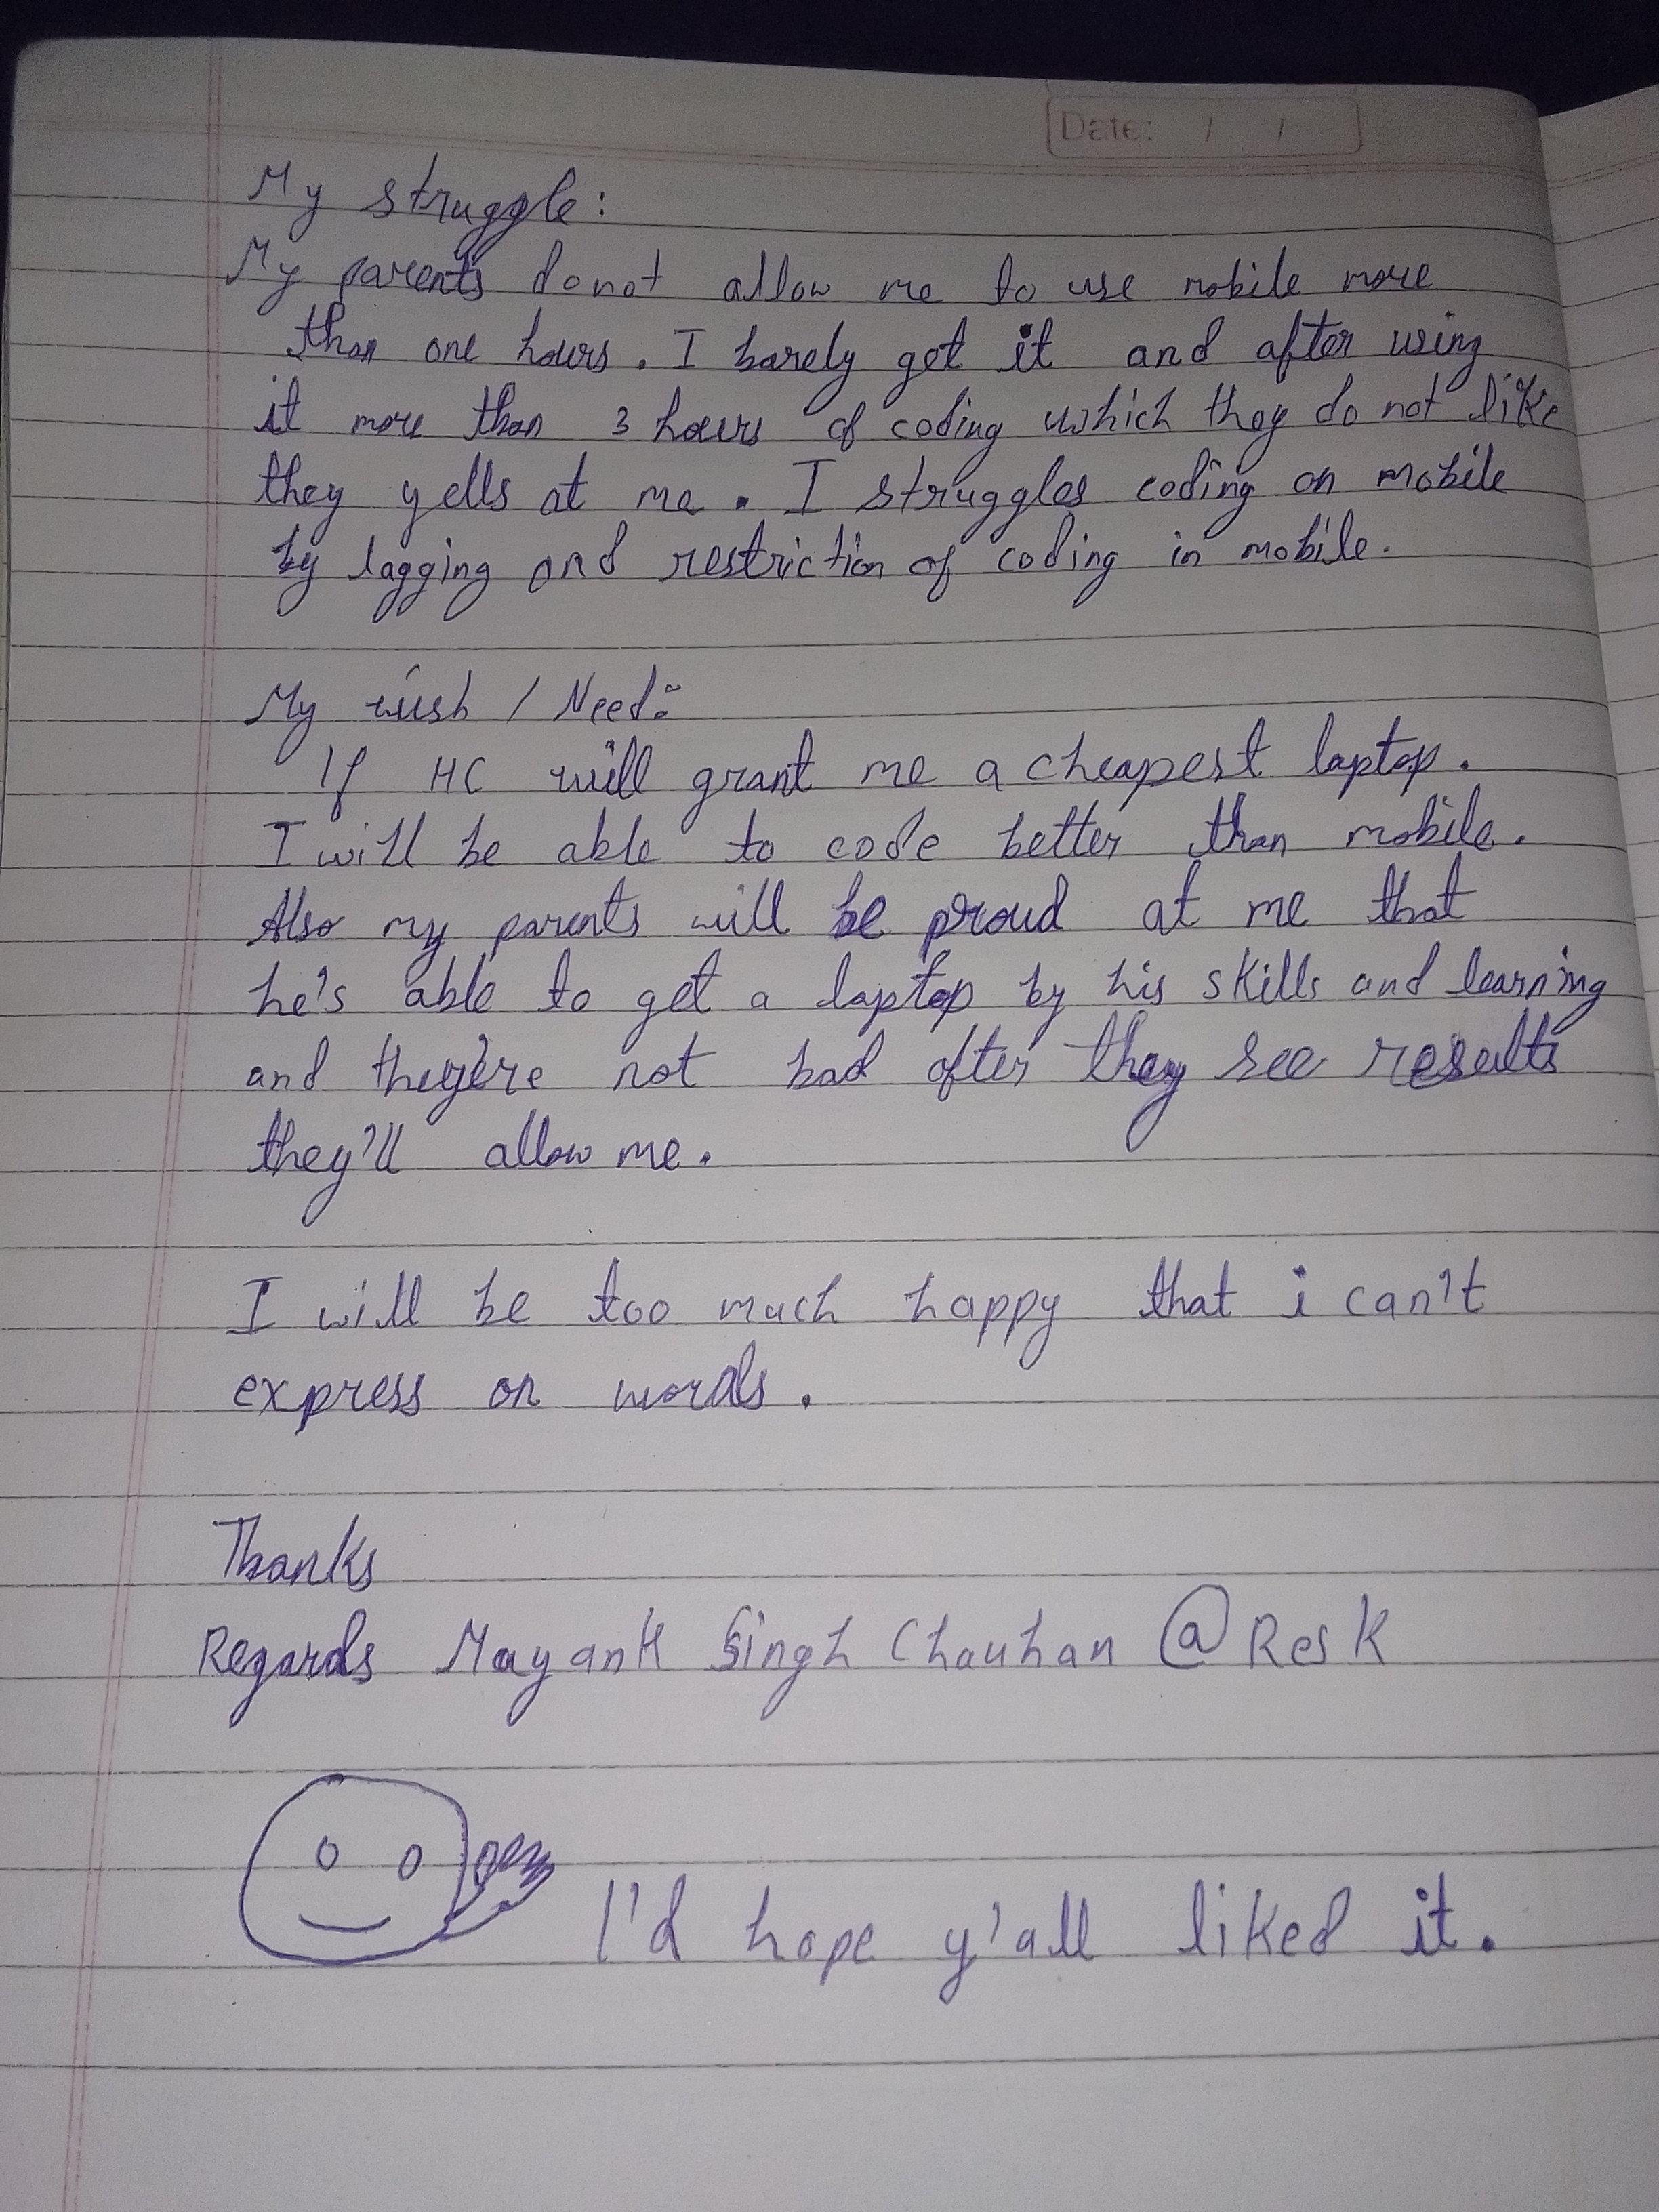 Date: / /
My struggle:
My parents donot allow me to use mobile more
than one hours. I barely get it and after using
it more than 3 hours of coding which they do not like
they yells at me. I struggles coding on mobile
by lagging and restriction of coding in mobile.
My wish / Need:
If HC will grant me a cheapest laptop.
I will be able to code better than mobile.
Also my parents will be proud at me that
he's able to get a laptop by his skills and learning
and they're not bad after they see results
they'll allow me.
I will be too much happy that i can't
express on words.
Thanks
Regards Mayank Singh Chauhan @Resk
I'd hope y'all liked it.